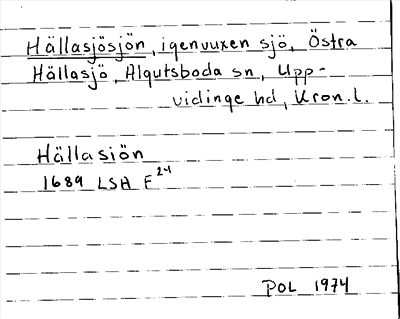 Hällasjösjön, igenvuxen sjö, Östra
Hällasjö, Algutsboda sn, Upp-
vidinge hd, Kron. l.
Hälla siön
1689 LSH F 24
POL 1974